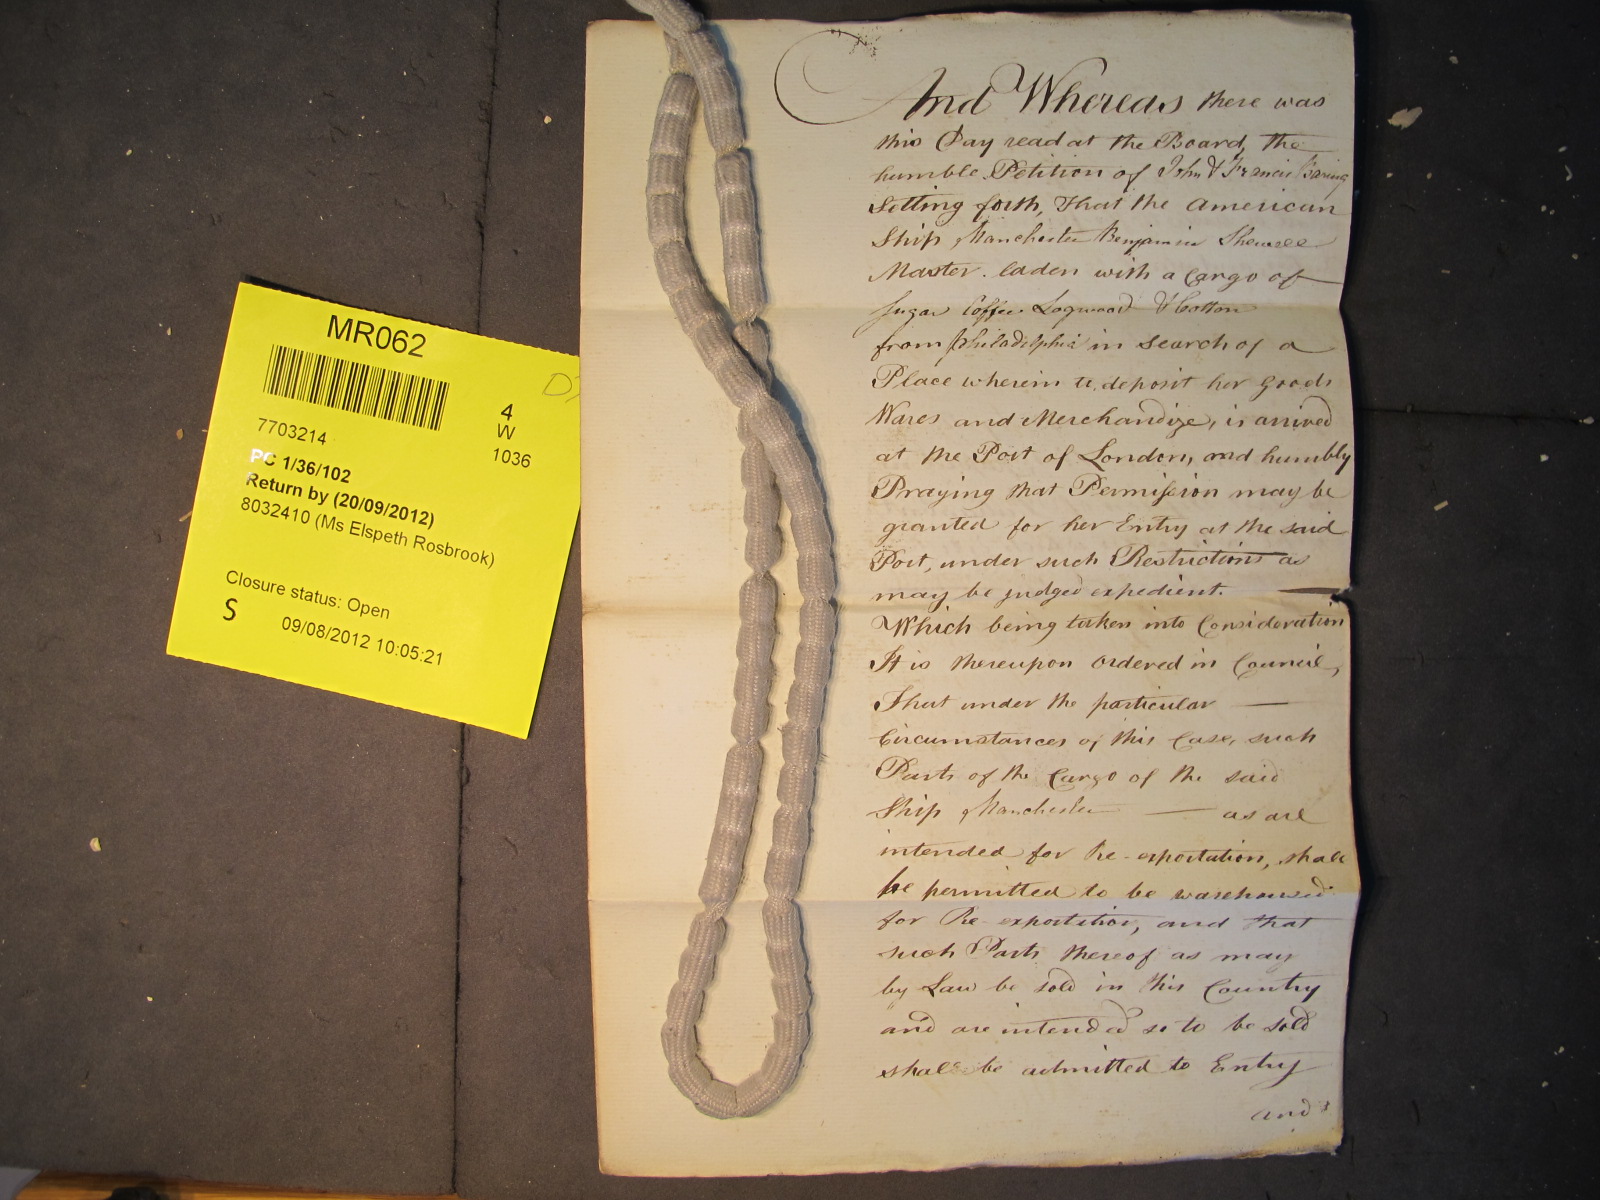 MR062
4
W
1036
7703214
PC 1/36/102
Return by (20/09/2012)
8032410 (Ms Elspeth Rosbrook)
Closure status: Open
S
09/08/2012 10:05:21
And Whereas there was
this Day read at the Board, the
humble Petition of John & Francis Baring
Setting forth, That the American
Ship Manchester Benjamin Shewell
Master. laden with a Cargo of
Sugar Coffee Logwood & Cotton
from Philadelphia in search of a
Place wherein to deposit her goods
Wares and Merchandize, is arrived
at the Port of London, and humbly
Praying that Permission may be
granted for her Entry at the said
Port, under such Restrictions as
may be judged expedient.
Which being taken into Consideration
It is thereupon Ordered in Council,
That under the particular
Circumstances of this Case, such
Parts of the Cargo of the said
Ship Manchester as are
intended for Re-exportation, shall
be permitted to be warehoused
for Re-exportation, and that
such Parts thereof as may
by Law be sold in this Country
and are intended so to be sold
shall be admitted to Entry
and